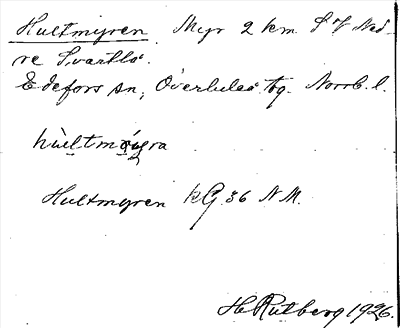 Hultmyren Myr 2 km S V Ned-
re Svartlå.
Edefors sn, Överluleå tg. Norrb. l.
Hultmyren kG 36 NM.
H. Rutberg 1926.